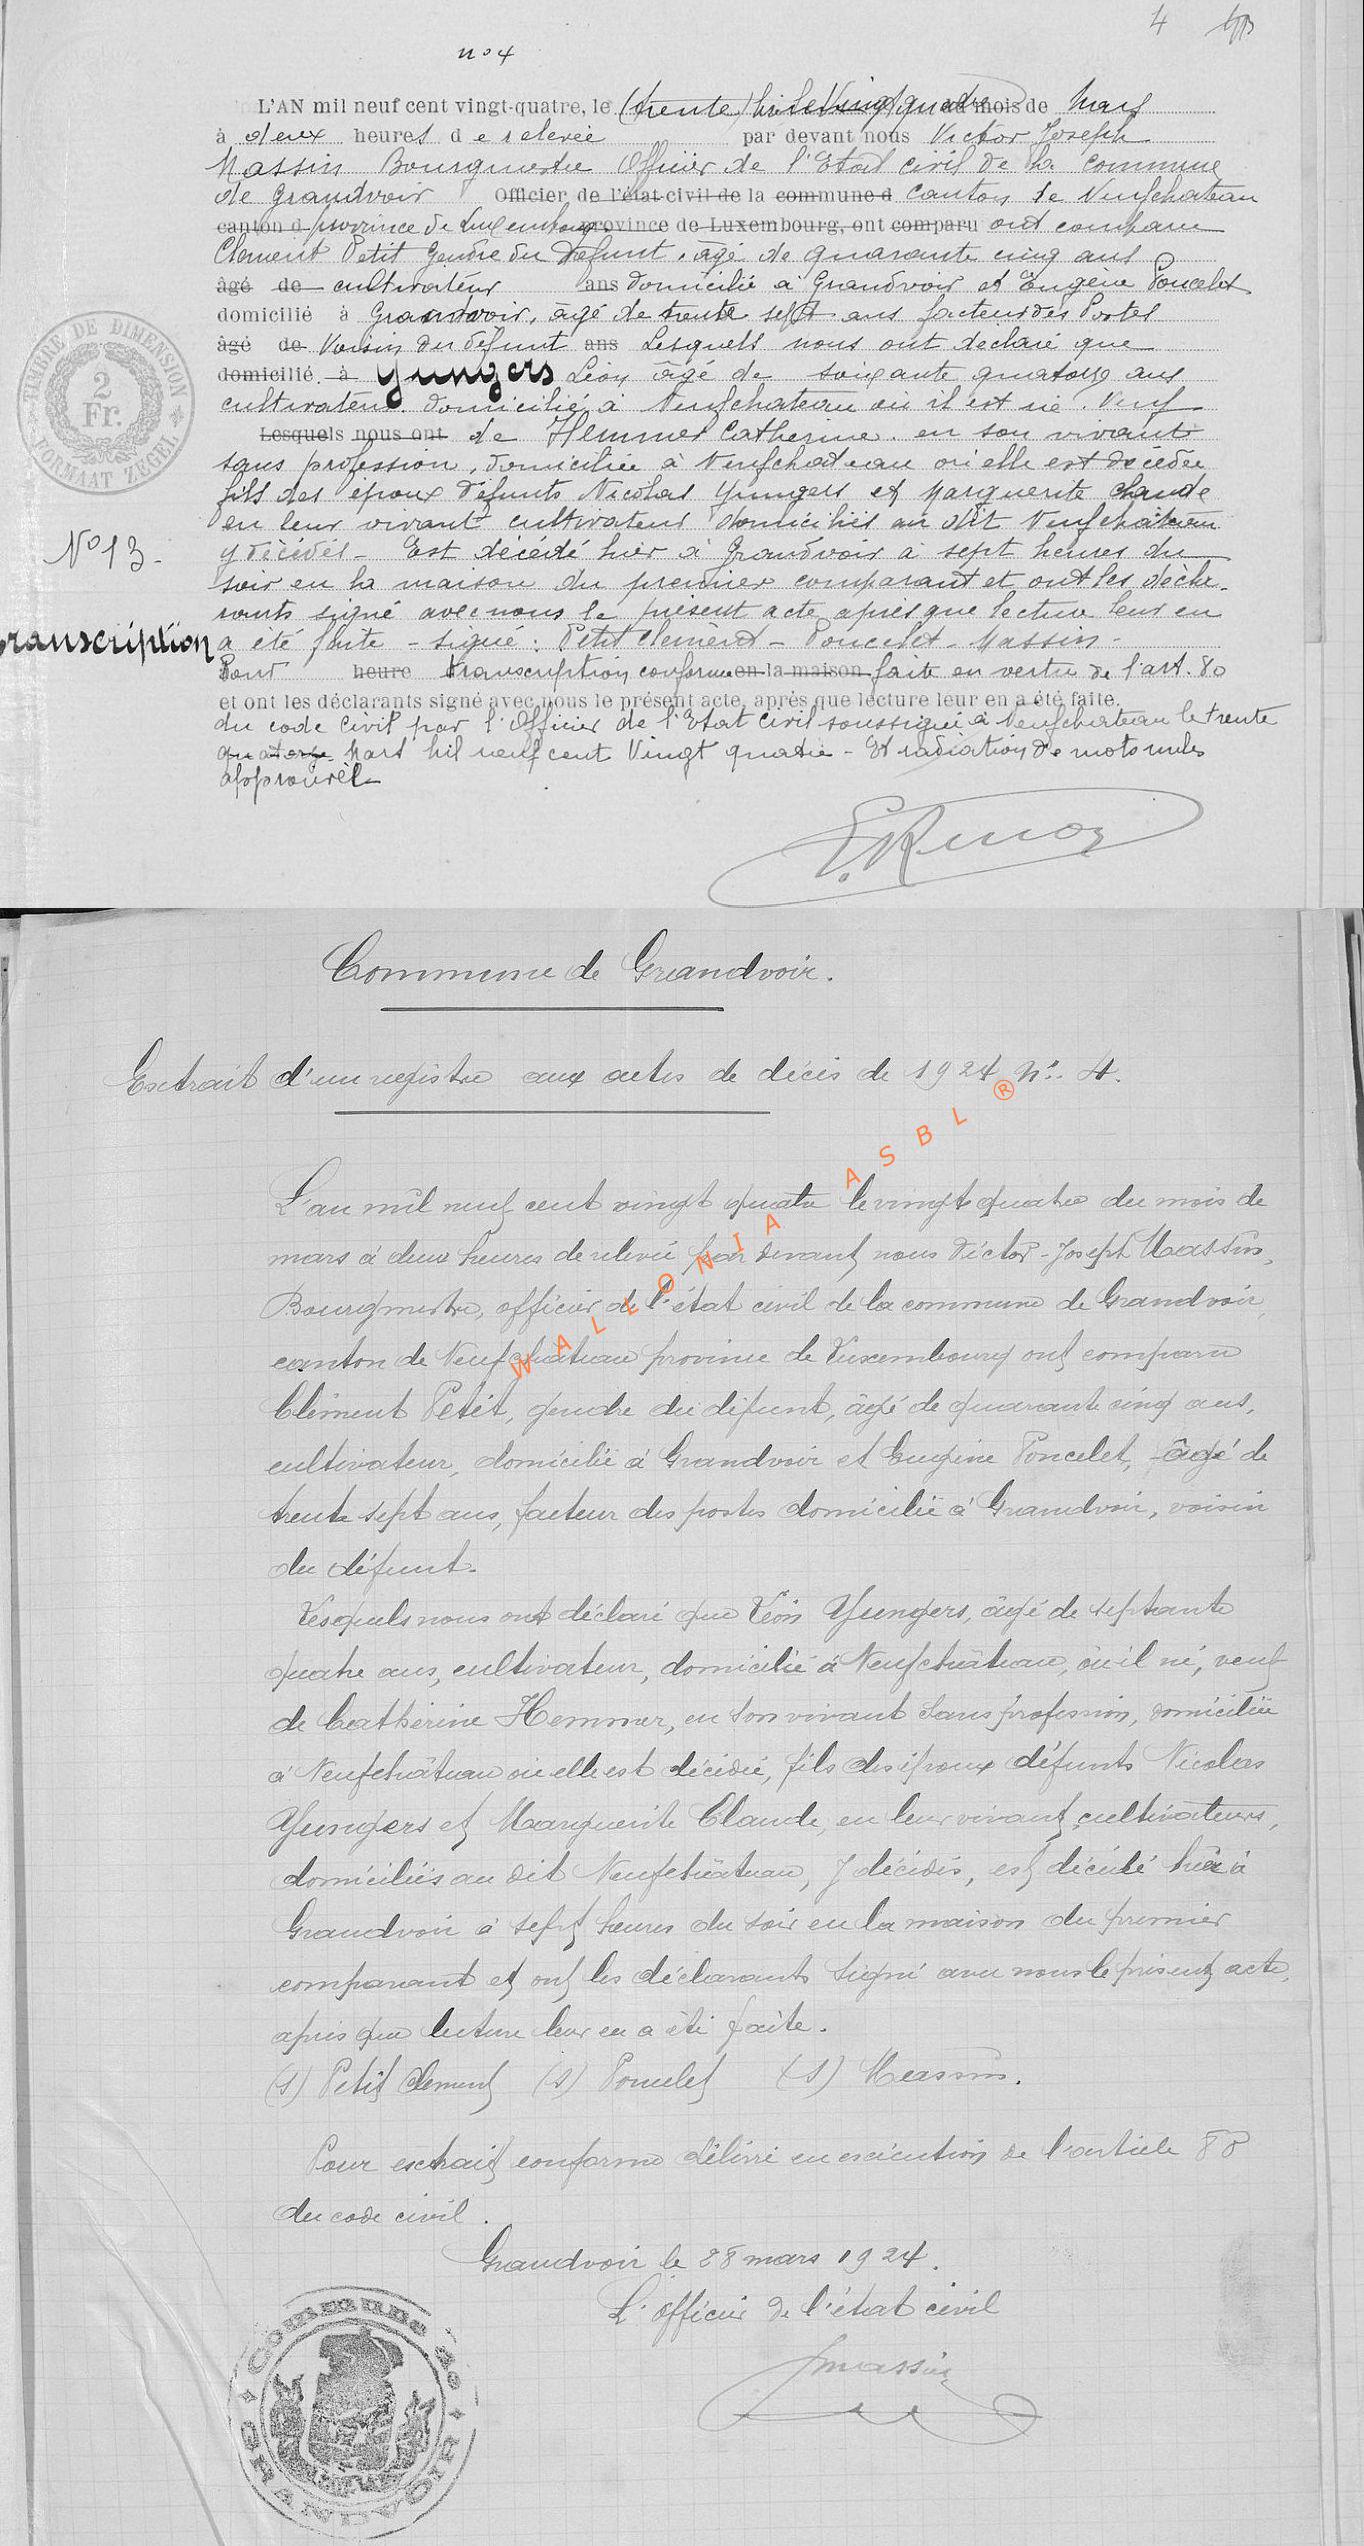 4
n° 4
L'AN mil neuf cent vingt-quatre, le (trente) du mois de Mars
à deux heures de relevée par devant nous Victor Joseph
Massin Bourgmestre Officier de l'Etat civil de la commune
de Grandvoir Officier de l'état civil de la commune d canton de Neufchateau
canton d province de Luxembourg. province de Luxembourg, ont comparu ont comparu
Clement Petit Gendre du défunt, âgé de quarante cinq ans
âgé de cultivateur ans domicilié à Grandvoir et Eugène Poncelet
domicilié à Grandvoir, âgé de trente sept ans facteur des Postes
âgé de Voisin du défunt ans Lesquels nous ont declaré que
domicilié à Yungers Léon âgé de soixante quatorze ans
cultivateur domicilié à Neufchateau où il est né. Veuf
Lesquels nous ont de Hemmer Catherine en son vivant
sans profession, domiciliée à Neufchateau où elle est décédée
fils des époux défunts Nicolas Yungers et Marguerite Claude
en leur vivant cultivateurs domiciliés au dit Neufchateau
y décédés - Est décédé hier à Grandvoir à sept heures du
N° 13 -
soir en la maison du premier comparant et ont les décla-
rants signé avec nous le présent acte après que lecture leur en
transcription
a été faite - signé : Petit Clément - Poncelet - Massin -
Pour heure transcription conforme en la maison faite en vertu de l'art. 80
et ont les déclarants signé avec nous le présent acte, après que lecture leur en a été faite.
du code civil par l'Officier de l'Etat civil soussigné à Neufchateau le trente
quatorze Mars mil neuf cent Vingt quatre - Et radiation de mots nuls
approuvés
TIMBRE DE DIMENSION
2
Fr.
FORMAAT ZEGEL
Commune de Grandvoir.
Extrait d'un registre aux actes de décès de 1924 N°. 4.
WALLONIA ASBL ®
L'an mil neuf cent vingt quatre le vingt quatre du mois de
mars à deux heures de relevée par devant nous Victor-Joseph Massin,
Bourgmestre, officier de l'état civil de la commune de Grandvoir
canton de Neufchâteau province de Luxembourg ont comparu
Clément Petit, gendre du défunt, âgé de quarante cinq ans,
cultivateur, domicilié à Grandvoir et Eugène Poncelet, âgé de
trente sept ans, facteur des postes domicilié à Grandvoir, voisin
du défunt.
Lesquels nous ont déclaré que Léon Yungers, âgé de septante
quatre ans, cultivateur, domicilié à Neufchâteau, où il né, veuf
de Cathérine Hemmer, en son vivant sans profession, domiciliée
à Neufchâteau où elle est décédée, fils des époux défunts Nicolas
Yungers et Marguerite Claude, en leur vivant cultivateurs,
domiciliés au dit Neufchâteau, y décédés, est décédé hier à
Grandvoir à sept heures du soir en la maison du premier
comparant et ont les déclarants signé avec nous le présent acte,
après que lecture leur en a été faite.
(s) Petit Clement (s) Poncelet (s) Massin.
Pour extrait conforme délivré en exécution de l'article 80
du code civil.
Grandvoir le 28 mars 1924.
L'Officier de l'état civil
Jmassin
COMMUNE DE GRANDVOIR